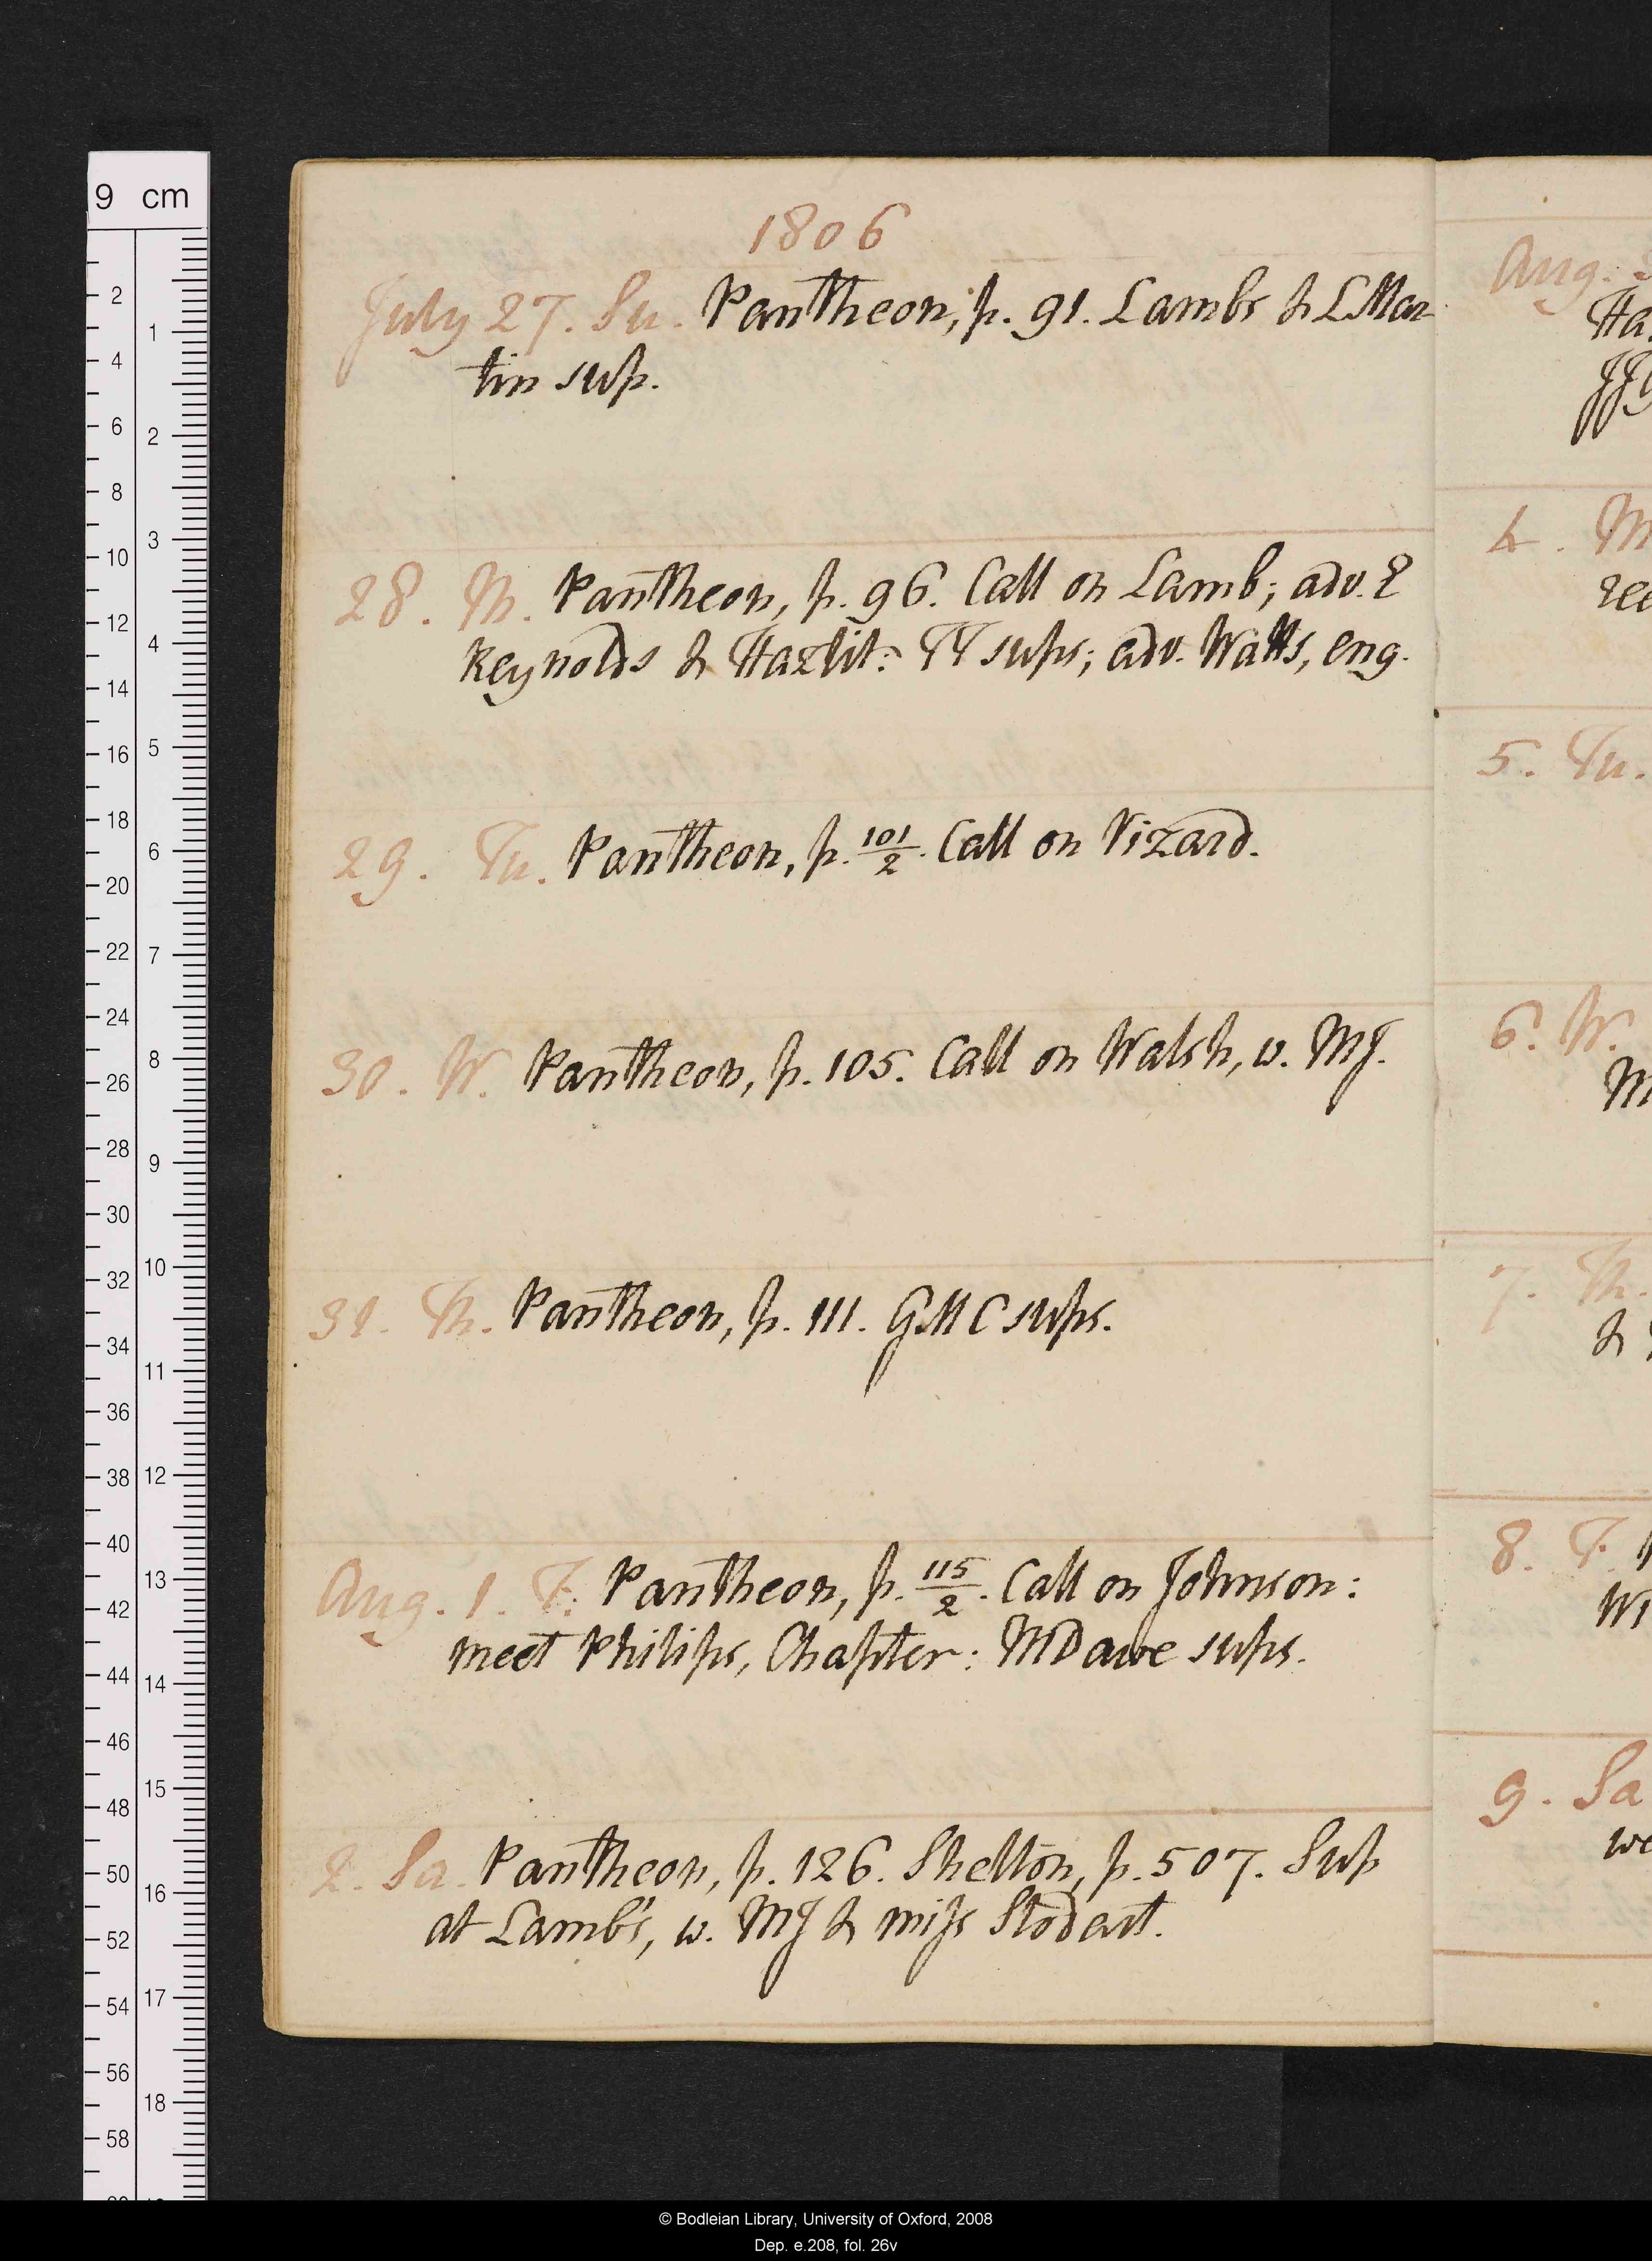 9 cm
1806
July 27. Su. Pantheon, p. 91. Lambs & L Mar-
tin sup.
28. M. Pantheon, p. 96. Call on Lamb; adv. E
Reynolds & Hazlit: TT sups; adv. Watts, eng.
29. Tu. Pantheon, p. 101/2. Call on Vizard.
30. W. Pantheon, p. 105. Call on Walsh, w. MJ.
31. Th. Pantheon, p. 111. GMC sups.
Aug. 1. F. Pantheon, p. 115/2. Call on Johnson:
meet Philips, Chapter: MDawe sups.
2. Sa. Pantheon, p. 126. Shelton, p. 507. Sup
at Lamb's, w. MJ & miss Stodart.
Aug. 3
Ha
4. M
5. Tu.
6. W.
M
7. Th.
&
8. F.
Wi
9. Sa
we
© Bodleian Library, University of Oxford, 2008
Dep. e.208, fol. 26v